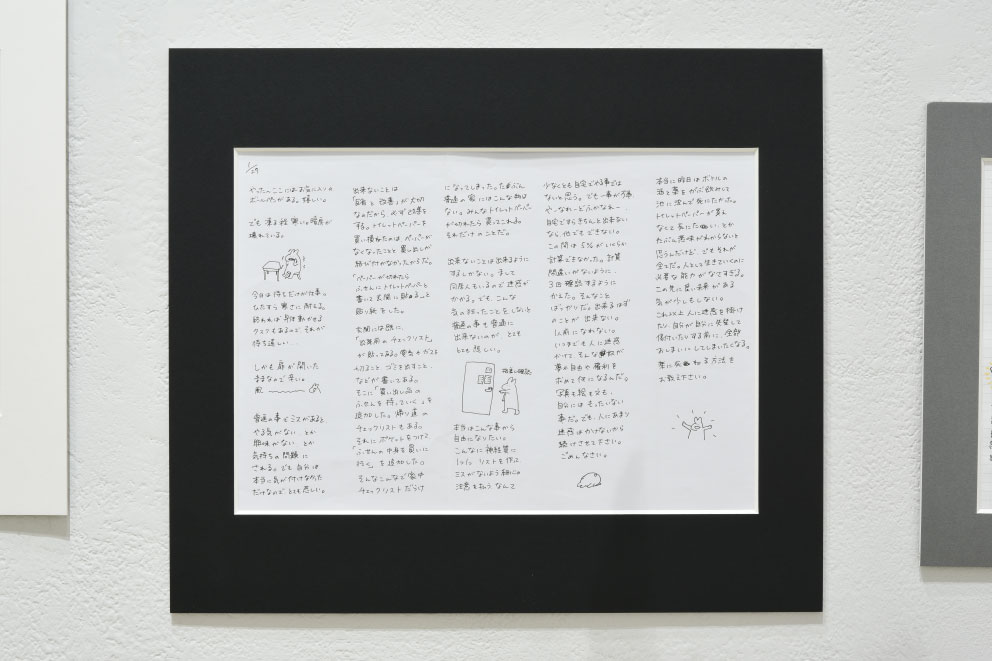 1/29
やった。ここにはお気に入りの
ボールペンがある。嬉しい。
でも 凄え程 寒い。暖房が
壊れている。
今日は待ちだけが仕事。
ひたすら 寒さに耐える。
終われば 身体動かせる
タスクもあるので それが
待ち遠しい…
しかも 扉が開いた
ままなので 辛い。
風
普通の事でミスがあると
やる気がない とか
興味がない とか
気持ちの問題に
される。でも 自分は
本当に気が付けなかった
だけなので とても悲しい。
出来ないことは
「自責と改善」が大切
なのだから 必ず改善を
する。トイレットペーパーを
買い損ねたのは ペーパーが
なくなったことと 買い出しが
結び付かなかったからだ。
「ペーパーが切れたら
ふせんにトイレットペーパーと
書いて玄関に貼ること」
貼り紙をした。
玄関には既に、
「出発前のチェックリスト」
が貼ってある。電気やガスを
切ること ゴミを出すこと…
などが書いてある。
そこに「買い出し品の
ふせんを持っていく」を
追加した。帰り道の
チェックリストもある。
それに ポケットをつけて
「ふせんの中身を買いに
行く」を追加した。
そんなこんなで家中
チェックリストだらけ
になってしまった。たぶん
普通の家にはこんな物は
ない。みんなトイレットペーパー
が切れたら 買いにこれる。
それだけのことだ。
出来ないことは出来るように
するしかない。まして
同居人もいるので迷惑が
かかる。でも、こんな
気の狂ったことをしないと
普通の事も普通に
出来ないのが、とても
とても悲しい。
指差し確認
本当はこんな事から
自由になりたい。
こんなに神経質に
いつも リストを作って
ミスがないよう細心の
注意を払う なんて
少なくとも自宅でやる事では
ないと思う。でも…事が事
やーなれーとふかなれー
自宅ですらきちんと出来ない
なら 他でもできない。
この間は 5%がいくらか
計算できなかった。計算
間違いがないように、
3回確認するように
かえた。そんなこと
ばっかりだ。出来るはず
のことが 出来ない。
1人前になれない。
いつまでも人に迷惑
かけて そんな奴が
夢や自由や権利を
求めて何になるんだ。
写真も絵も文も、
自分には もったいない
事だ。でも、人にあまり
迷惑はかけないから
続けさせて下さい。
ごめんなさい。
本当に昨日はボトルの
酒と薬をがぶ飲みして
池に沈んで死にたかった。
トイレットペーパーが買え
なくて 死にたい とか
たぶん意味がわからないと
思うんだけど、でもそれが
全てだ。人として生きていくのに
必要な能力がなさすぎる。
この先に良い未来がある
気が少しもしない。
これ以上 人に迷惑を掛け
たり、自分が自分に失望して
傷付いたりする前に、全部
おしまいにしてしまいたくなる。
楽に終わる方法を
お教え下さい。